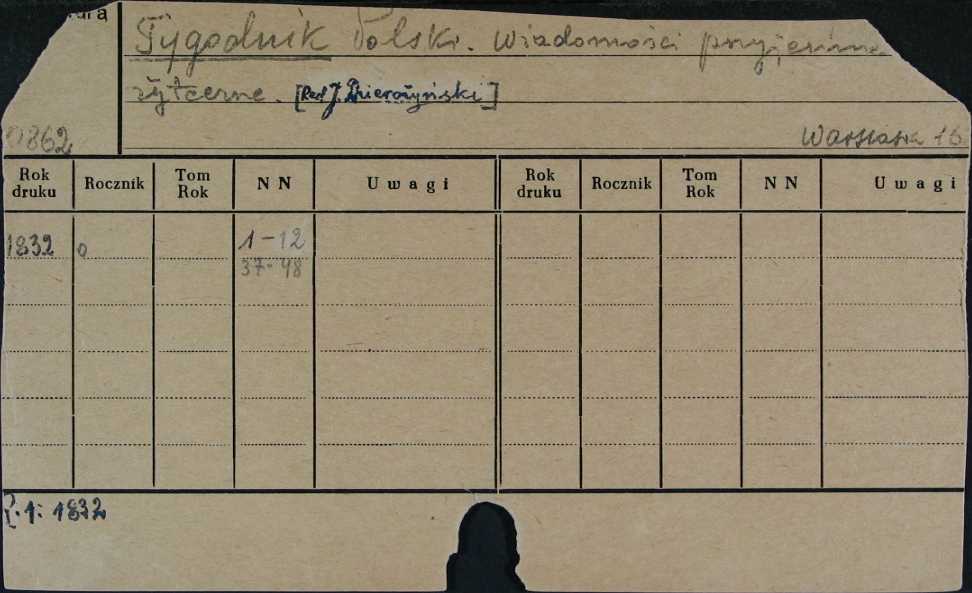 Tygodnik Polski. Wiadomości przyjemne
żyteczne. [Red J. Dzierożyński]
0862
Warszawa 18
Rok druku Rocznik Tom Rok NN Uwagi Rok druku Rocznik Tom Rok NN Uwagi
1832 0 1-12
37-48
R.1: 1832